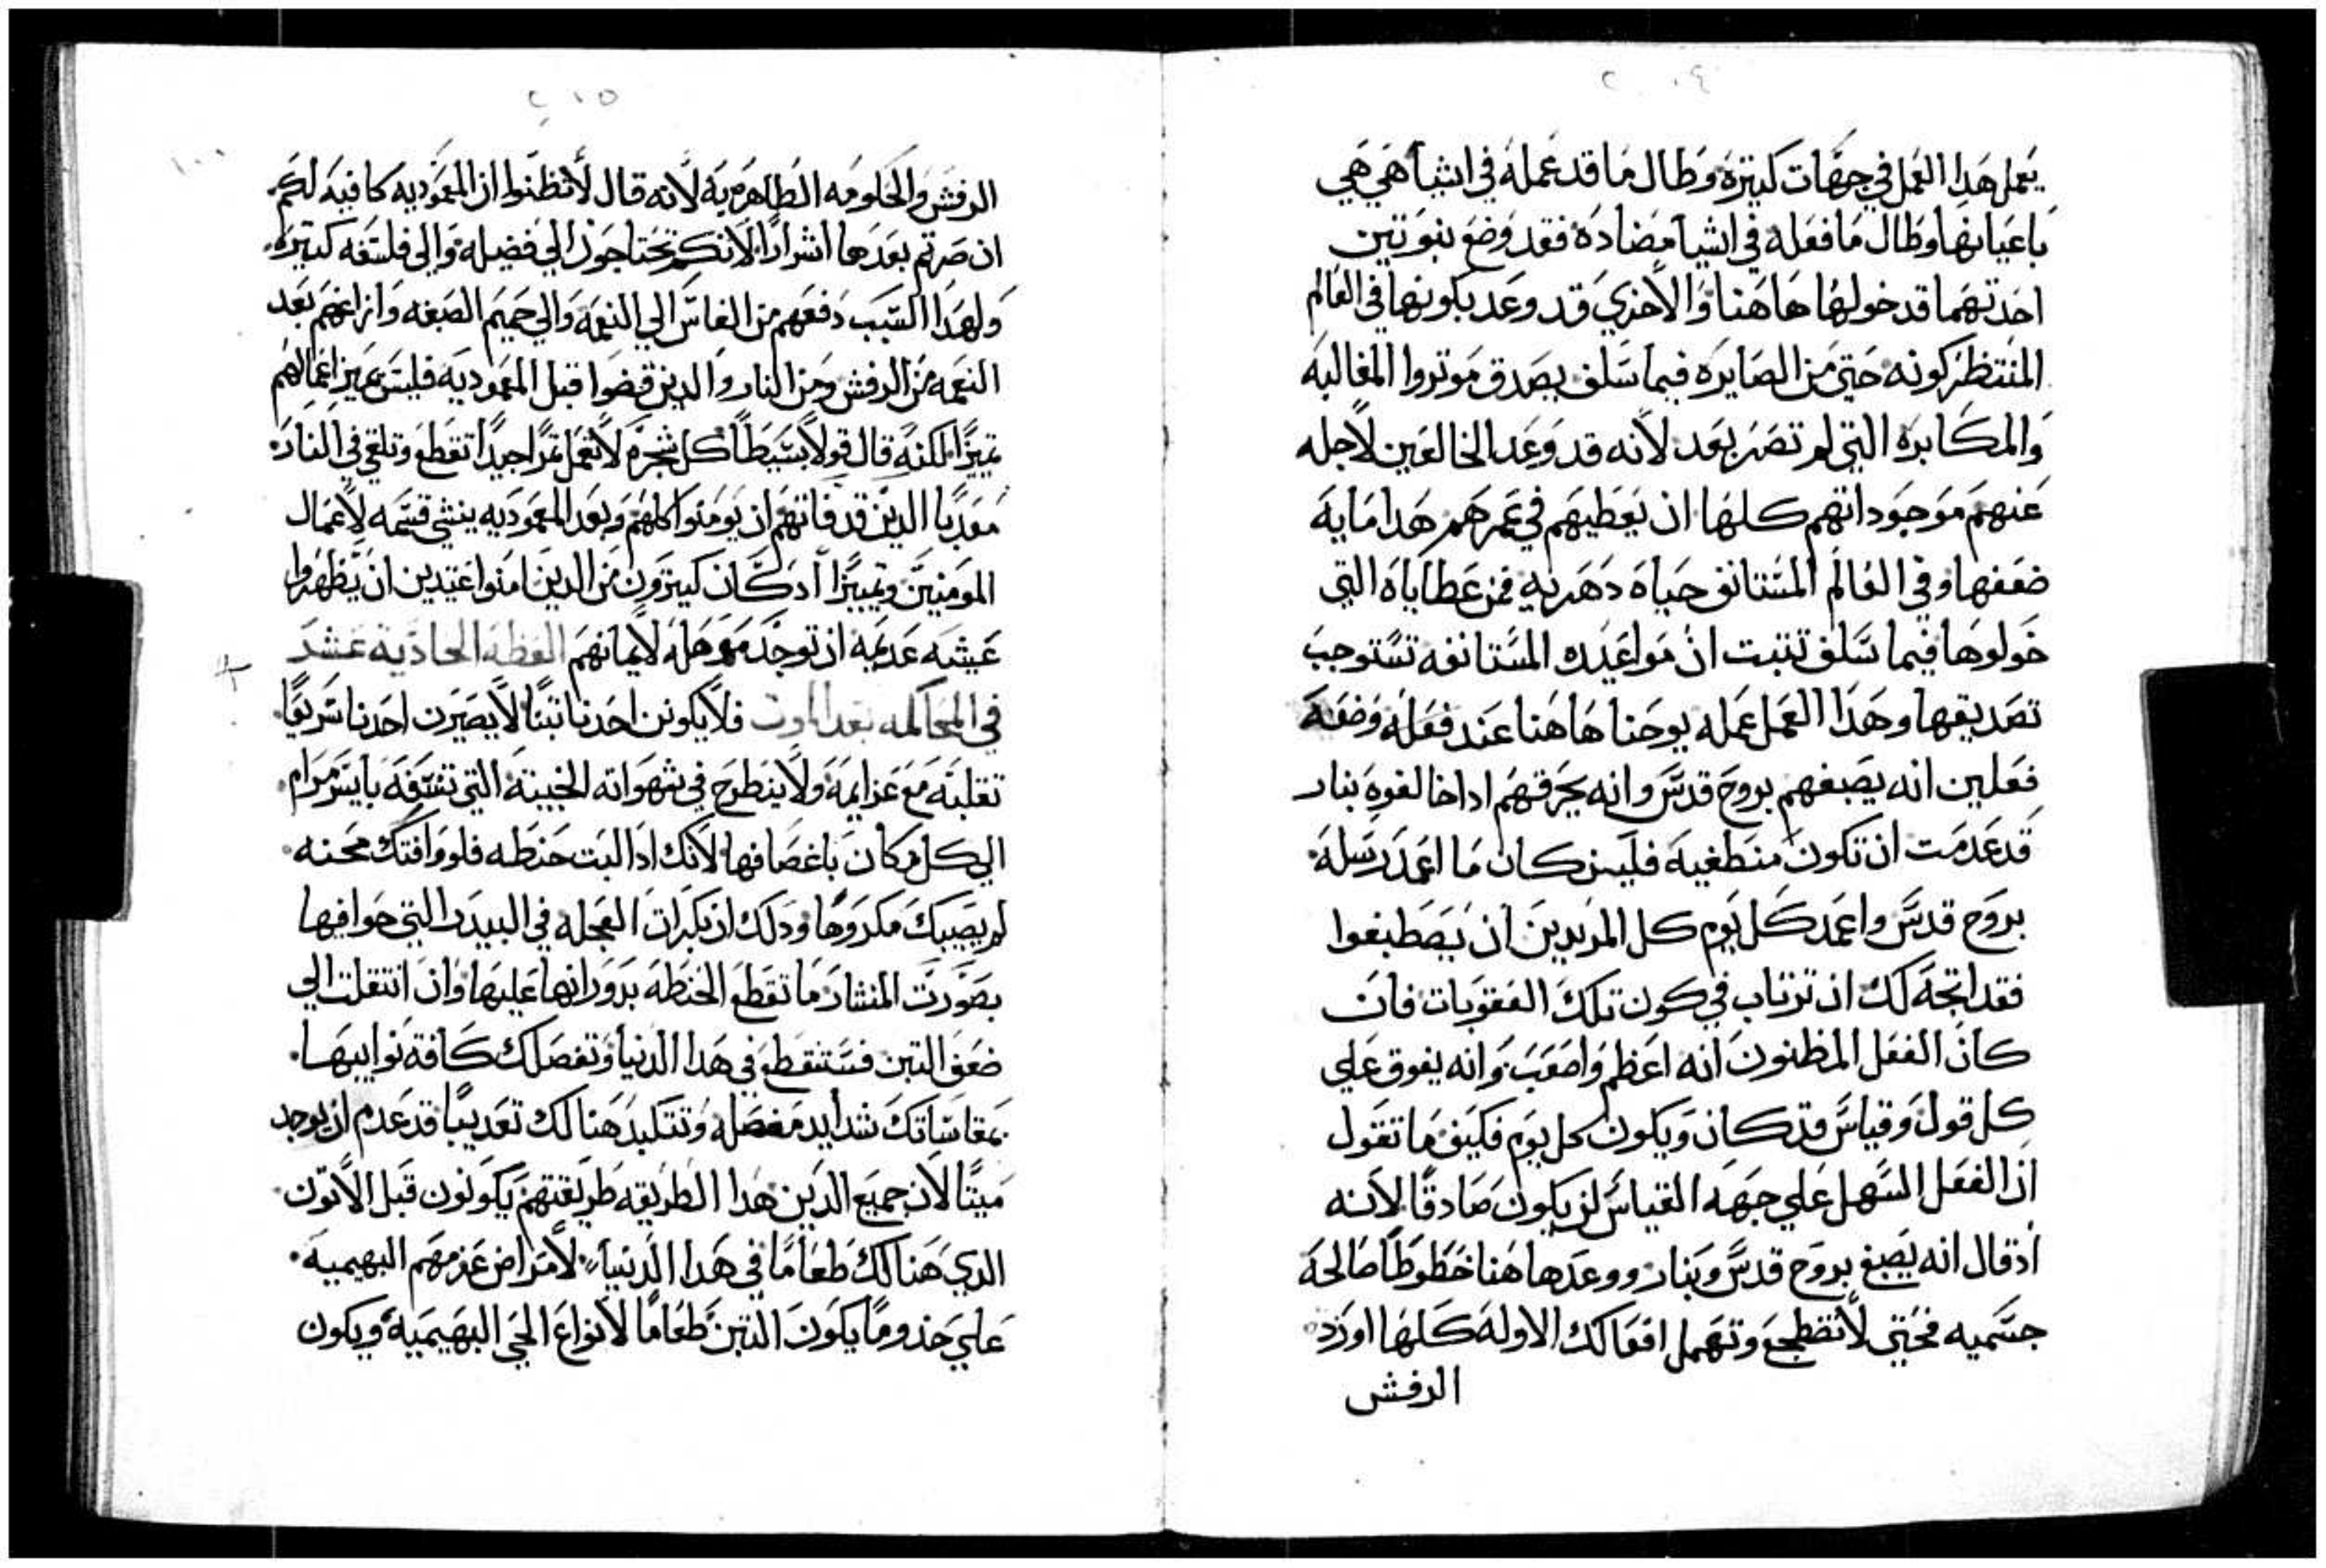 ٢٠٤
يعمل هدا العمل في جهات كتيرة وطال ما قد عمله في اشيا هي هي
باعيانها وطال ما فعله في اشيا مضاده فقد وضع نبوتين
احدتهما قد خولها هاهنا والاخري قد وعد بكونها في العالم
المنتظر كونه حتي من الصايره فيما سلف يصدق موتروا المغالبه
والمكابره التي لم تصر بعد لانه قد وعد الخالعين لاجله
عنهم موجوداتهم كلها ان يعطيهم في عمرهم هدا مايه
ضعفها وفي العالم المستانف حياه دهريه فمن عطاياه التي
خولوها فيما سلف تتبت ان مواعيده المستانفه تستوجب
تصديقها وهدا العمل عمله يوحنا هاهنا عند فعله وضعه
فعلين انه يصبغهم بروح قدس وانه يحرقهم ادا خالفوه بنار
قد عدمت ان تكون منطفيه فلين كان ما اعمد رسله
بروح قدس واعمد كل يوم كل المريدين ان يصطبغوا
فقد اتجه لك ان ترتاب في كون تلك العقوبات فان
كان الفعل المظنون انه اعظم واصعب وانه يفوق علي
كل قول وقياس قد كان ويكون كل يوم فكيف ما تقول
ان الفعل السهل علي جهه القياس لن يكون صادقا لانه
اد قال انه يصبغ بروح قدس وبنار ووعدها هنا خظوظا صالحه
جسميه فحتي لا تضطجع وتهمل افعالك الاوله كلها اورد
الرفش
٢٠٥
الرفش والحاومه الطاهره به لانه قال لا تظنوا ان المعموديه كافيه لكم
ان صرتم بعدها اشرارا لانكم تحتاجون الي فضيله والي فلسفه كتيره
ولهدا السبب دفعهم من الفاس الي النعمه والي حميم الصبغه وافزعهم بعد
النعمه من الرفش ومن النار والدين قضوا قبل المعموديه فليس يميز اعمالهم
تميزا لكنه قال قولا بسيطا كل شجره لا تعمل تمرا جيدا تقطع وتلقي في النار
معدبا الدين قد فاتهم ان يومنوا كلهم وبعد المعموديه ينشي قسمه لاعمال
المومنين وتمييزا اد كان كتيرون من الدين امنوا عتيدين ان يظهروا
عيشه عديمه ان توجد موهله لايمانهم العظه الحاديه عشر
في المحاكمه بعد الموت فلا يكونن احدنا تبنا لا يصيرن احدنا سريعا
تقلبه مع عزايمه ولا ينطرح في شهواته الخبيته التي تنسفه بايسر مرام
الي كل مكان باعصافها لانك ادا لبت حنطه فلو وافتك محنه
لم يصيبك مكروها ودلك ان بكرات العجله في البيدر التي حوافيها
بصورت المنشار ما تقطع الحنطه بدورانها عليها وان انتقلت الي
ضعف التبن فستنقطع في هدا الدنيا وتفصلك كافة نوايبها
بمقاساتك شدايد مفصله وتتكبد هنالك تعديبا قد عدم ان يوجد
ميتا لان جميع الدين هدا الطريقه طريقتهم يكونون قبل الاتون
الدي هنالك طعاما في هدا الدنيا لامراض عزمهم البهيميه
علي حدو ما يكون التبن طعاما لانواع الحي البهيميه ويكون